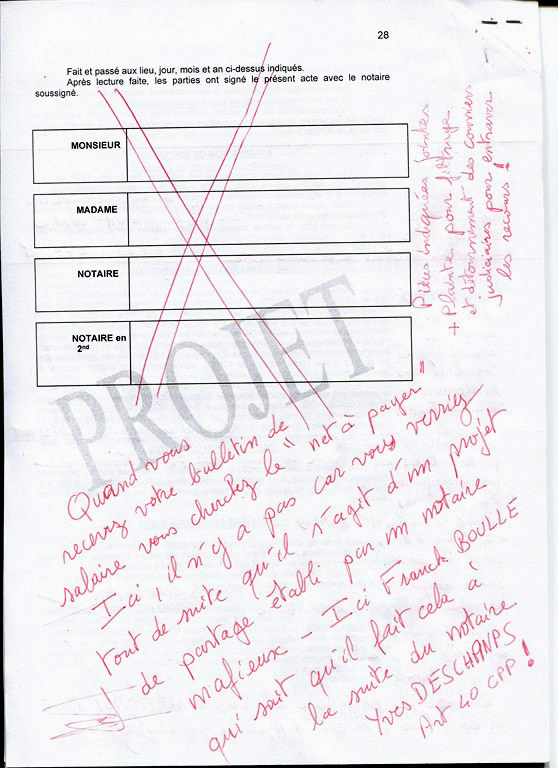 28
Fait et passé aux lieu, jour, mois et an ci-dessus indiqués.
Après lecture faite, les parties ont signé le présent acte avec le notaire
soussigné.
MONSIEUR
MADAME
NOTAIRE
NOTAIRE en
2nd
PROJET
Pièces indiquées jointes
+ Plainte pour filtrage
et détournement des courriers
judiciaires pour entraver
les recours !
Quand vous
recevez votre bulletin de
salaire vous cherchez le "net à payer =
Ici, il n'y a pas car vous verriez
tout de suite qu'il s'agit d'un projet
de partage établi par un notaire
mafieux - Ici Franck BOULLE
qui sait qu'il fait cela à
la suite du notaire
Yves DESCHAMPS
Art 40 CPP !